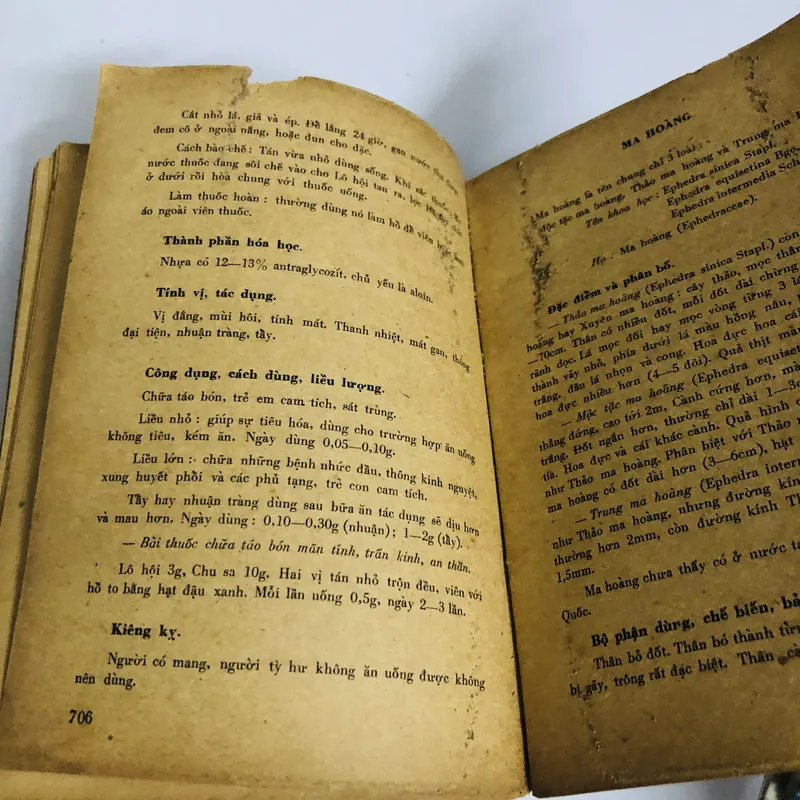 Cắt nhỏ lá, giã và ép. Để lắng 24 giờ, gạn nước
đem cô ở ngoài nắng, hoặc đun cho đặc.
Cách bào chế : Tán vừa nhỏ dùng sống. Khi sắc thuốc,
nước thuốc đang sôi chế vào cho Lô hội tan ra, lọc
ở dưới rồi hòa chung với thuốc uống.
Làm thuốc hoàn : thường dùng nó làm hồ để viên hoặc làm
áo ngoài viên thuốc.
Thành phần hóa học.
Nhựa có 12—13% antraglycozít, chủ yếu là aloin.
Tính vị, tác dụng.
Vị đắng, mùi hôi, tính mát. Thanh nhiệt, mát gan, thông
đại tiện, nhuận tràng, tẩy.
Công dụng, cách dùng, liều lượng.
Chữa táo bón, trẻ em cam tích, sát trùng.
Liều nhỏ : giúp sự tiêu hóa, dùng cho trường hợp ăn uống
không tiêu, kém ăn. Ngày dùng 0,05—0,10g.
Liều lớn : chữa những bệnh nhức đầu, thông kinh nguyệt,
xung huyết phổi và các phủ tạng, trẻ con cam tích.
Tẩy hay nhuận tràng dùng sau bữa ăn tác dụng sẽ dịu hơn
và mau hơn. Ngày dùng : 0,10—0,30g (nhuận) ; 1—2g (tẩy).
— Bài thuốc chữa táo bón mãn tính, trấn kinh, an thần.
Lô hội 3g, Chu sa 10g. Hai vị tán nhỏ trộn đều, viên với
hồ to bằng hạt đậu xanh. Mỗi lần uống 0,5g, ngày 2—3 lần.
Kiêng kỵ.
Người có mang, người tỳ hư không ăn uống được không
nên dùng.
706
MA HOÀNG
Ma hoàng là tên chung chỉ 3 loài :
độc tặc ma hoàng, Thảo ma hoàng và Trung ma
Tên khoa học : Ephedra sinica Stapf.
Ephedra equisetina Bge.
Ephedra intermedia
Họ : Ma hoàng (Ephedraceae).
Đặc điểm và phân bố.
— Thảo ma hoàng (Ephedra sinica Stapf.) còn
hoàng hay Xuyên ma hoàng : cây thảo, mọc
—70cm. Thân có nhiều đốt, mỗi đốt dài chừng
rãnh dọc. Lá mọc đối hay mọc vòng từng 3 lá
thành vảy nhỏ, phía dưới lá màu hồng nâu,
trắng, đầu lá nhọn và cong. Hoa đực hoa cái
hoa đực nhiều hơn (4—5 đôi). Quả thịt
— Mộc tặc ma hoàng (Ephedra
thẳng đứng, cao tới 2m, Cành cứng hơn,
trắng. Đốt ngắn hơn, thường chỉ dài
tía. Hoa đực và cái khác cành. Quả hình
như Thảo ma hoàng. Phân biệt với Thảo
ma hoàng có đốt dài hơn (3—6cm), hạt
— Trung ma hoàng (Ephedra
như Thảo ma hoàng, nhưng đường kính
thường hơn 2mm, còn đường kính
1,5mm.
Ma hoàng chưa thấy có ở nước ta
Quốc.
Bộ phận dùng, chế biến,
Thân bỏ đốt. Thân bó thành
bị gãy, trông rất đặc biệt. Thân